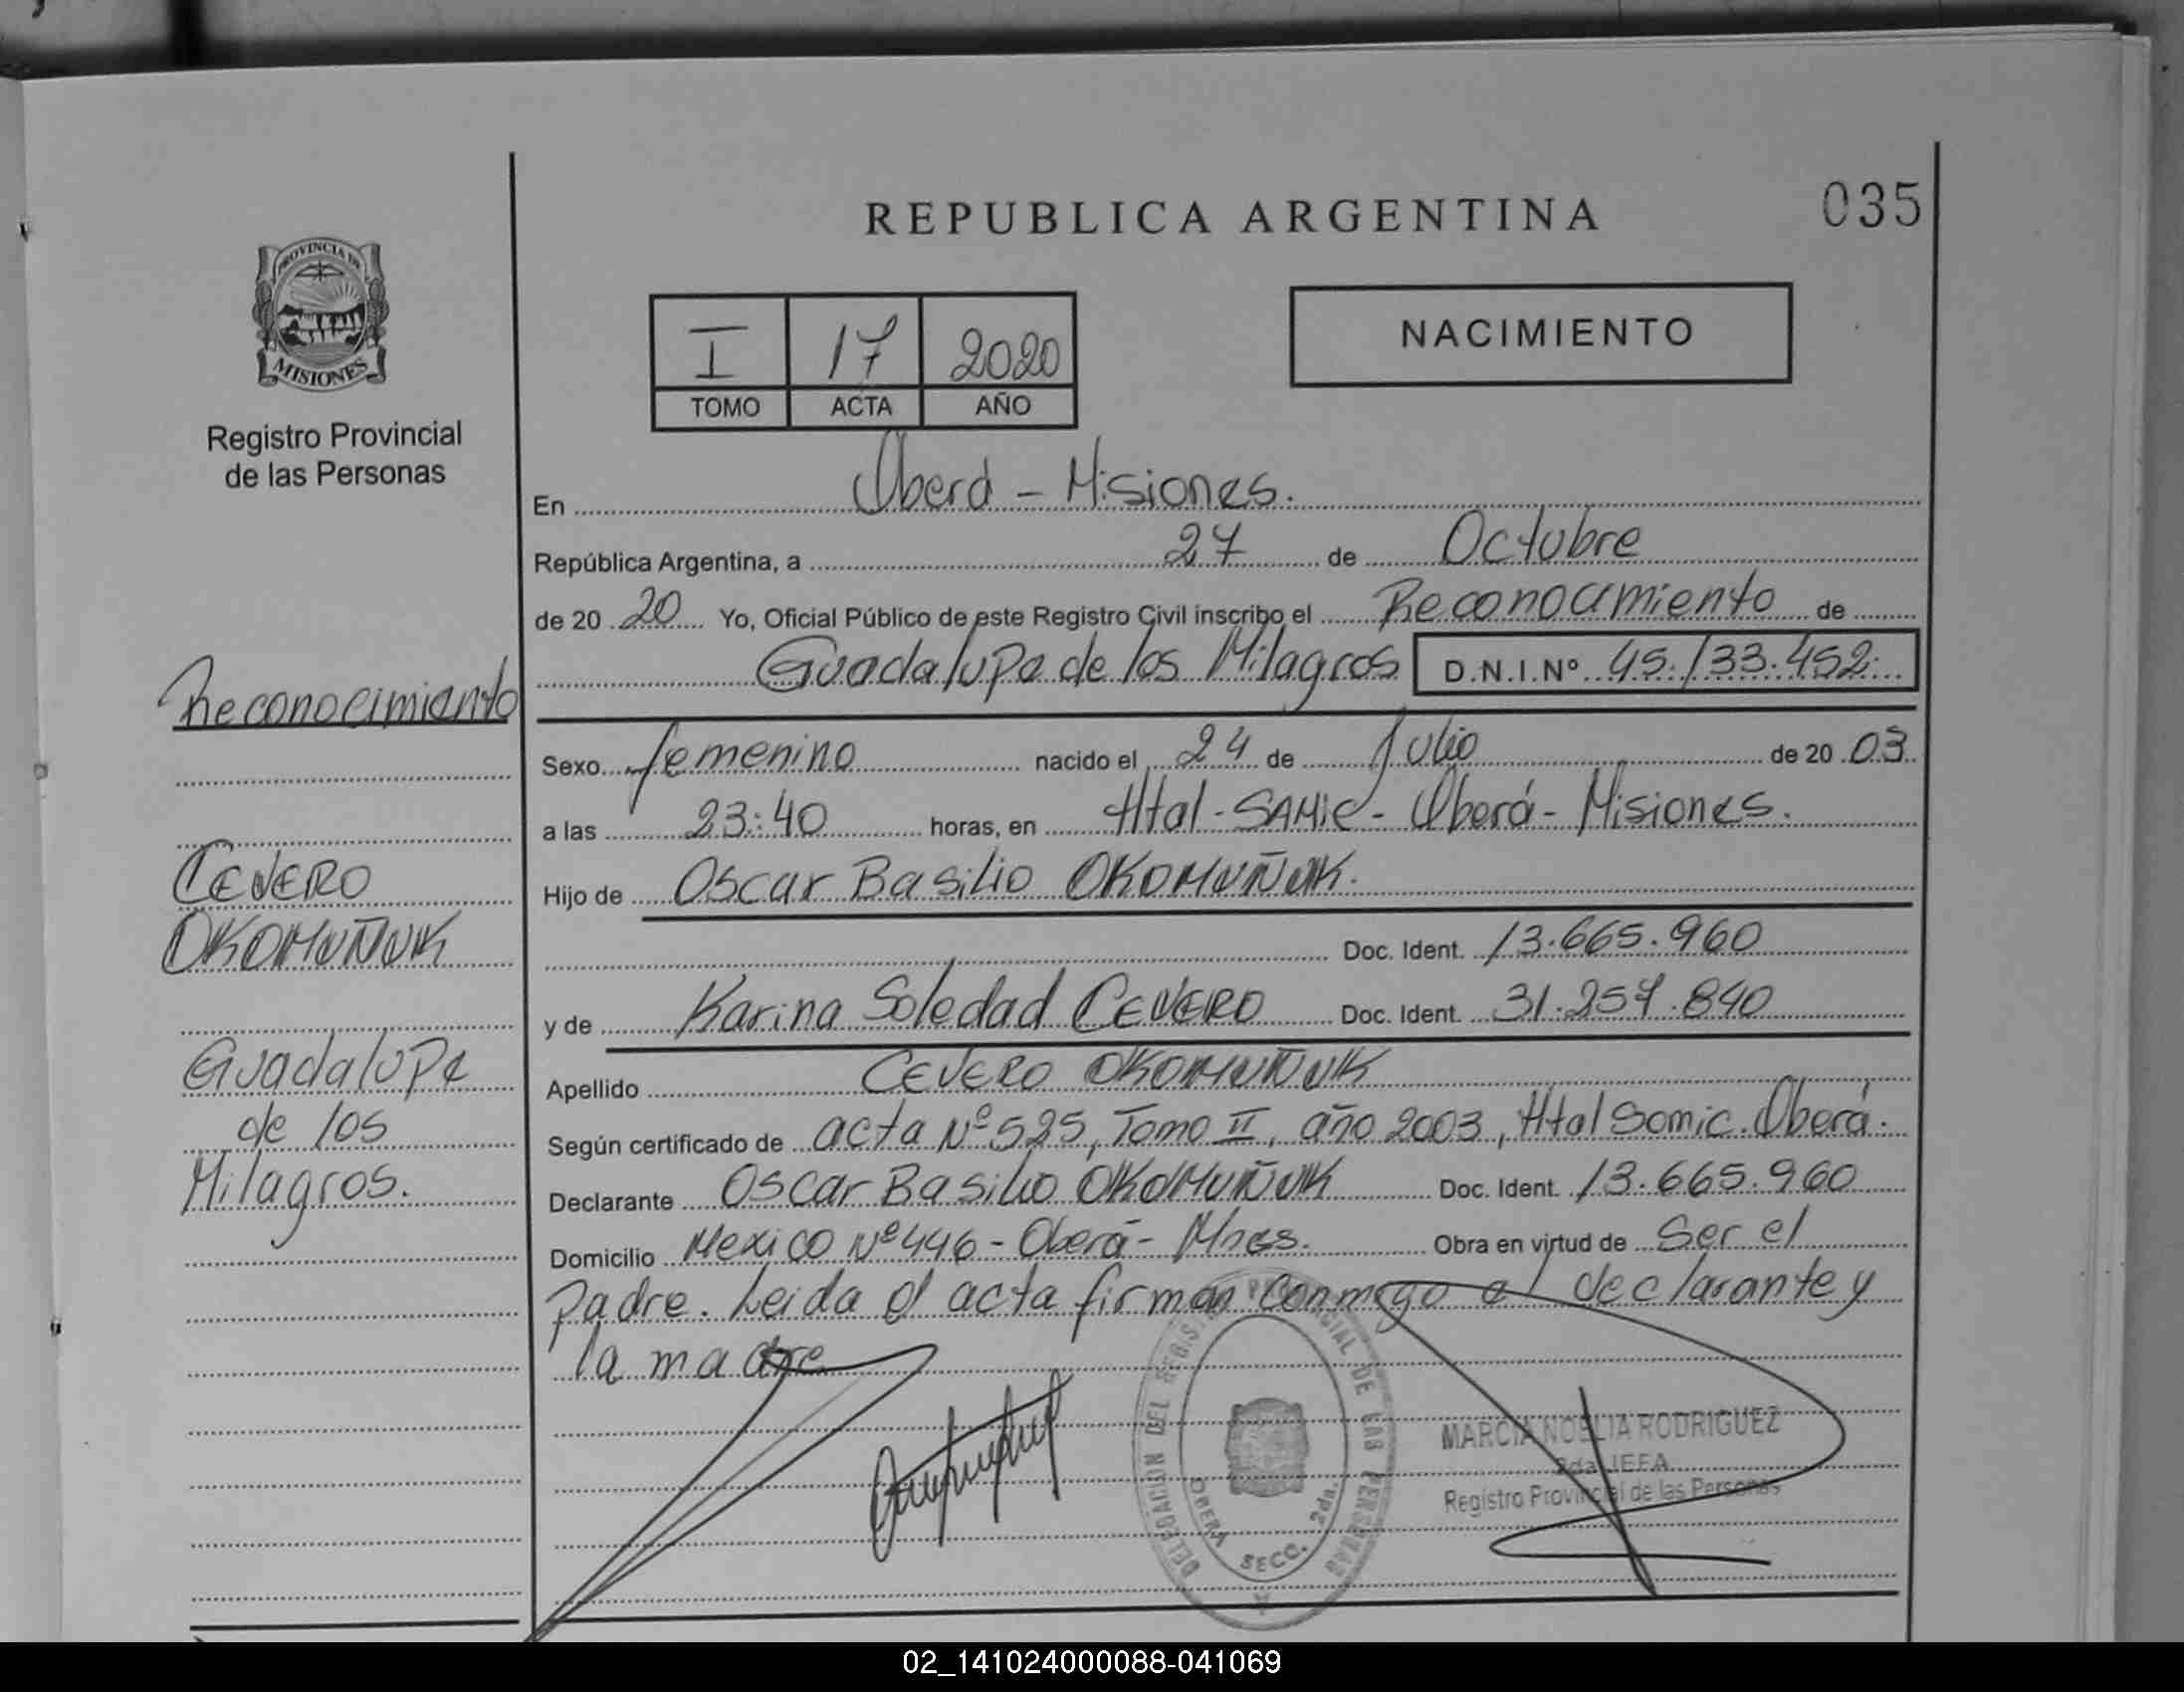 REPUBLICA ARGENTINA
035
PROVINCIA DE
MISIONES
Registro Provincial
de las Personas
I 17 2020
TOMO ACTA AÑO
NACIMIENTO
En Oberá - Misiones.
República Argentina, a 27 de Octubre
de 20 20 Yo, Oficial Público de este Registro Civil inscribo el Reconocimiento de
Guadalupe de los Milagros D.N.I.Nº 45.133.452
Reconocimiento
Sexo femenino nacido el 24 de Julio de 20 03
a las 23:40 horas, en Htal - SAMIC - Oberá - Misiones.
CEVERO
Hijo de Oscar Basilio OKOMUÑUK.
OKOMUÑUK
Doc. Ident. 13.665.960
y de Karina Soledad CEVERO Doc. Ident. 31.257.840
Guadalupe
Apellido CEVERO OKOMUÑUK
de los
Según certificado de acta Nº 525, Tomo II, año 2003, Htal Samic. Oberá.
Milagros.
Declarante Oscar Basilio OKOMUÑUK Doc. Ident. 13.665.960
Domicilio Mexico Nº 446 - Oberá - Mnes. Obra en virtud de Ser el
Padre. Leida el acta firman conmigo el declarante y
la madre
DELEGACION DEL REGISTRO PROVINCIAL DE LAS PERSONAS
OBERA SECC. 2da.
MARCIA NOELIA RODRIGUEZ
2da JEFA
Registro Provincial de las Personas
02_141024000088-041069